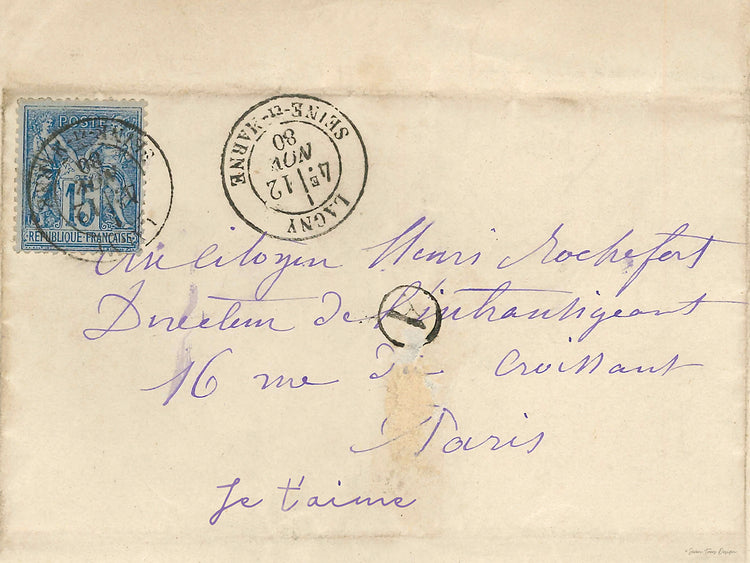 POSTE
15
REPUBLIQUE FRANÇAISE
LAGNY
SEINE-ET-MARNE
4E 12
NOV
80
Au citoyen Henri Rochefort
Directeur de l'intransigeant
A
16 rue du Croissant
Paris
Je t'aime